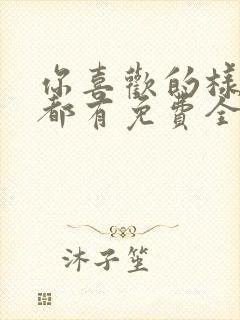 你喜歡的樣
都有免費全
沐子笙